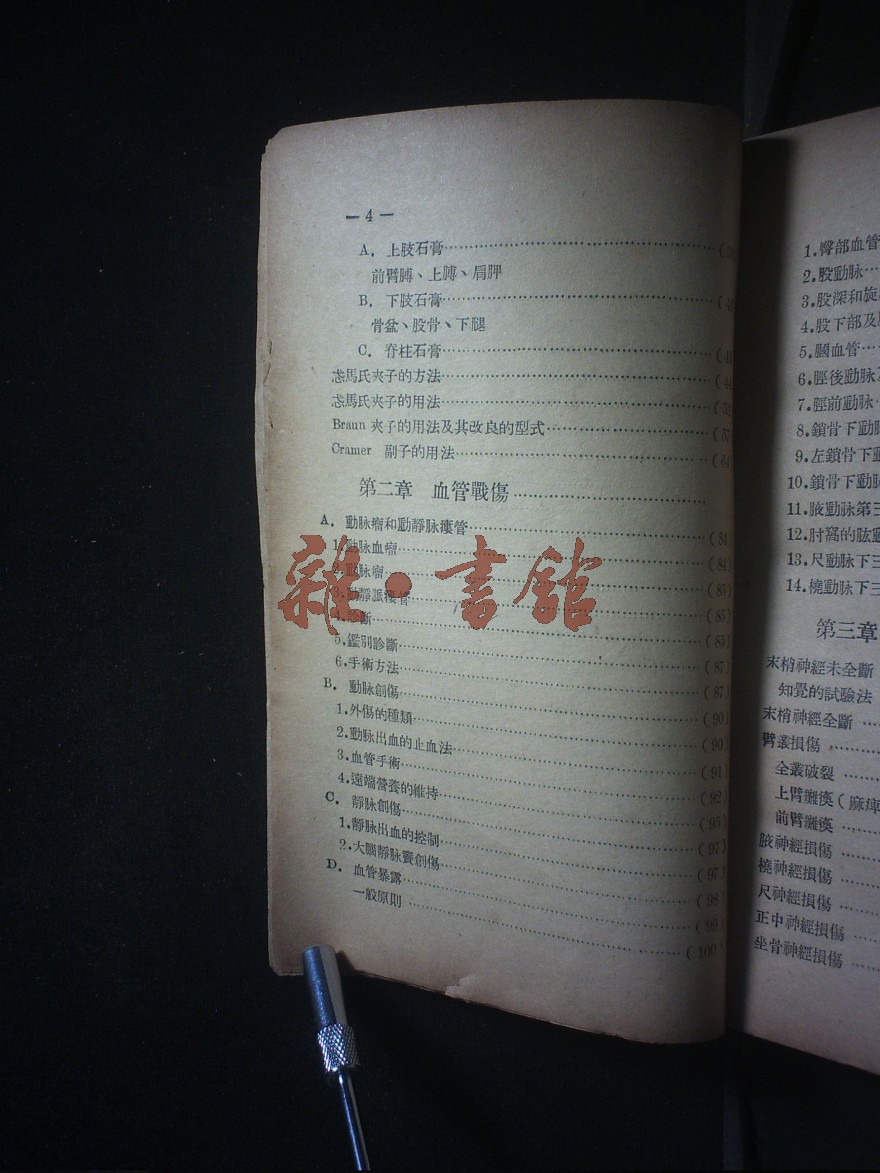 — 4 —
A. 上肢石膏
前臂膊、上膊、肩胛
B. 下肢石膏
骨盆、股骨、下腿
C. 脊柱石膏
馬氏夾子的方法
馬氏夾子的用法
Braun 夾子的用法及其改良的型式
Cramer 副子的用法
第二章 血管戰傷
A. 動脉瘤和動靜脉瘻管 (84)
1.動脉血瘤 (84)
2.動脉瘤 (85)
3.動靜脈瘻管 (85)
4.診斷 (85)
5.鑑別診斷 (87)
6.手術方法 (87)
B. 動脉創傷 (90)
1.外傷的種類 (90)
2.動脉出血的止血法 (91)
3.血管手術 (92)
4.遠端營養的維持 (95)
C. 靜脉創傷 (97)
1.靜脉出血的控制 (97)
2.大腦靜脉竇創傷 (98)
D. 血管暴露 (99)
一般原則 (100)
1.臀部血管
2.股動脉
3.股深和旋
4.股下部及
5.膕血管
6.脛後動脉
7.脛前動脉
8.鎖骨下動脉
9.左鎖骨下動
10.鎖骨下動脉
11.腋動脉第三
12.肘窩的肱動
13.尺動脉下三
14.橈動脉下三
第三章
末梢神經未全斷
知覺的試驗法
末梢神經全斷
臂叢損傷
全叢破裂
上臂癱瘓(麻痺
前臂癱瘓
腋神經損傷
橈神經損傷
尺神經損傷
正中神經損傷
坐骨神經損傷
雜·書館